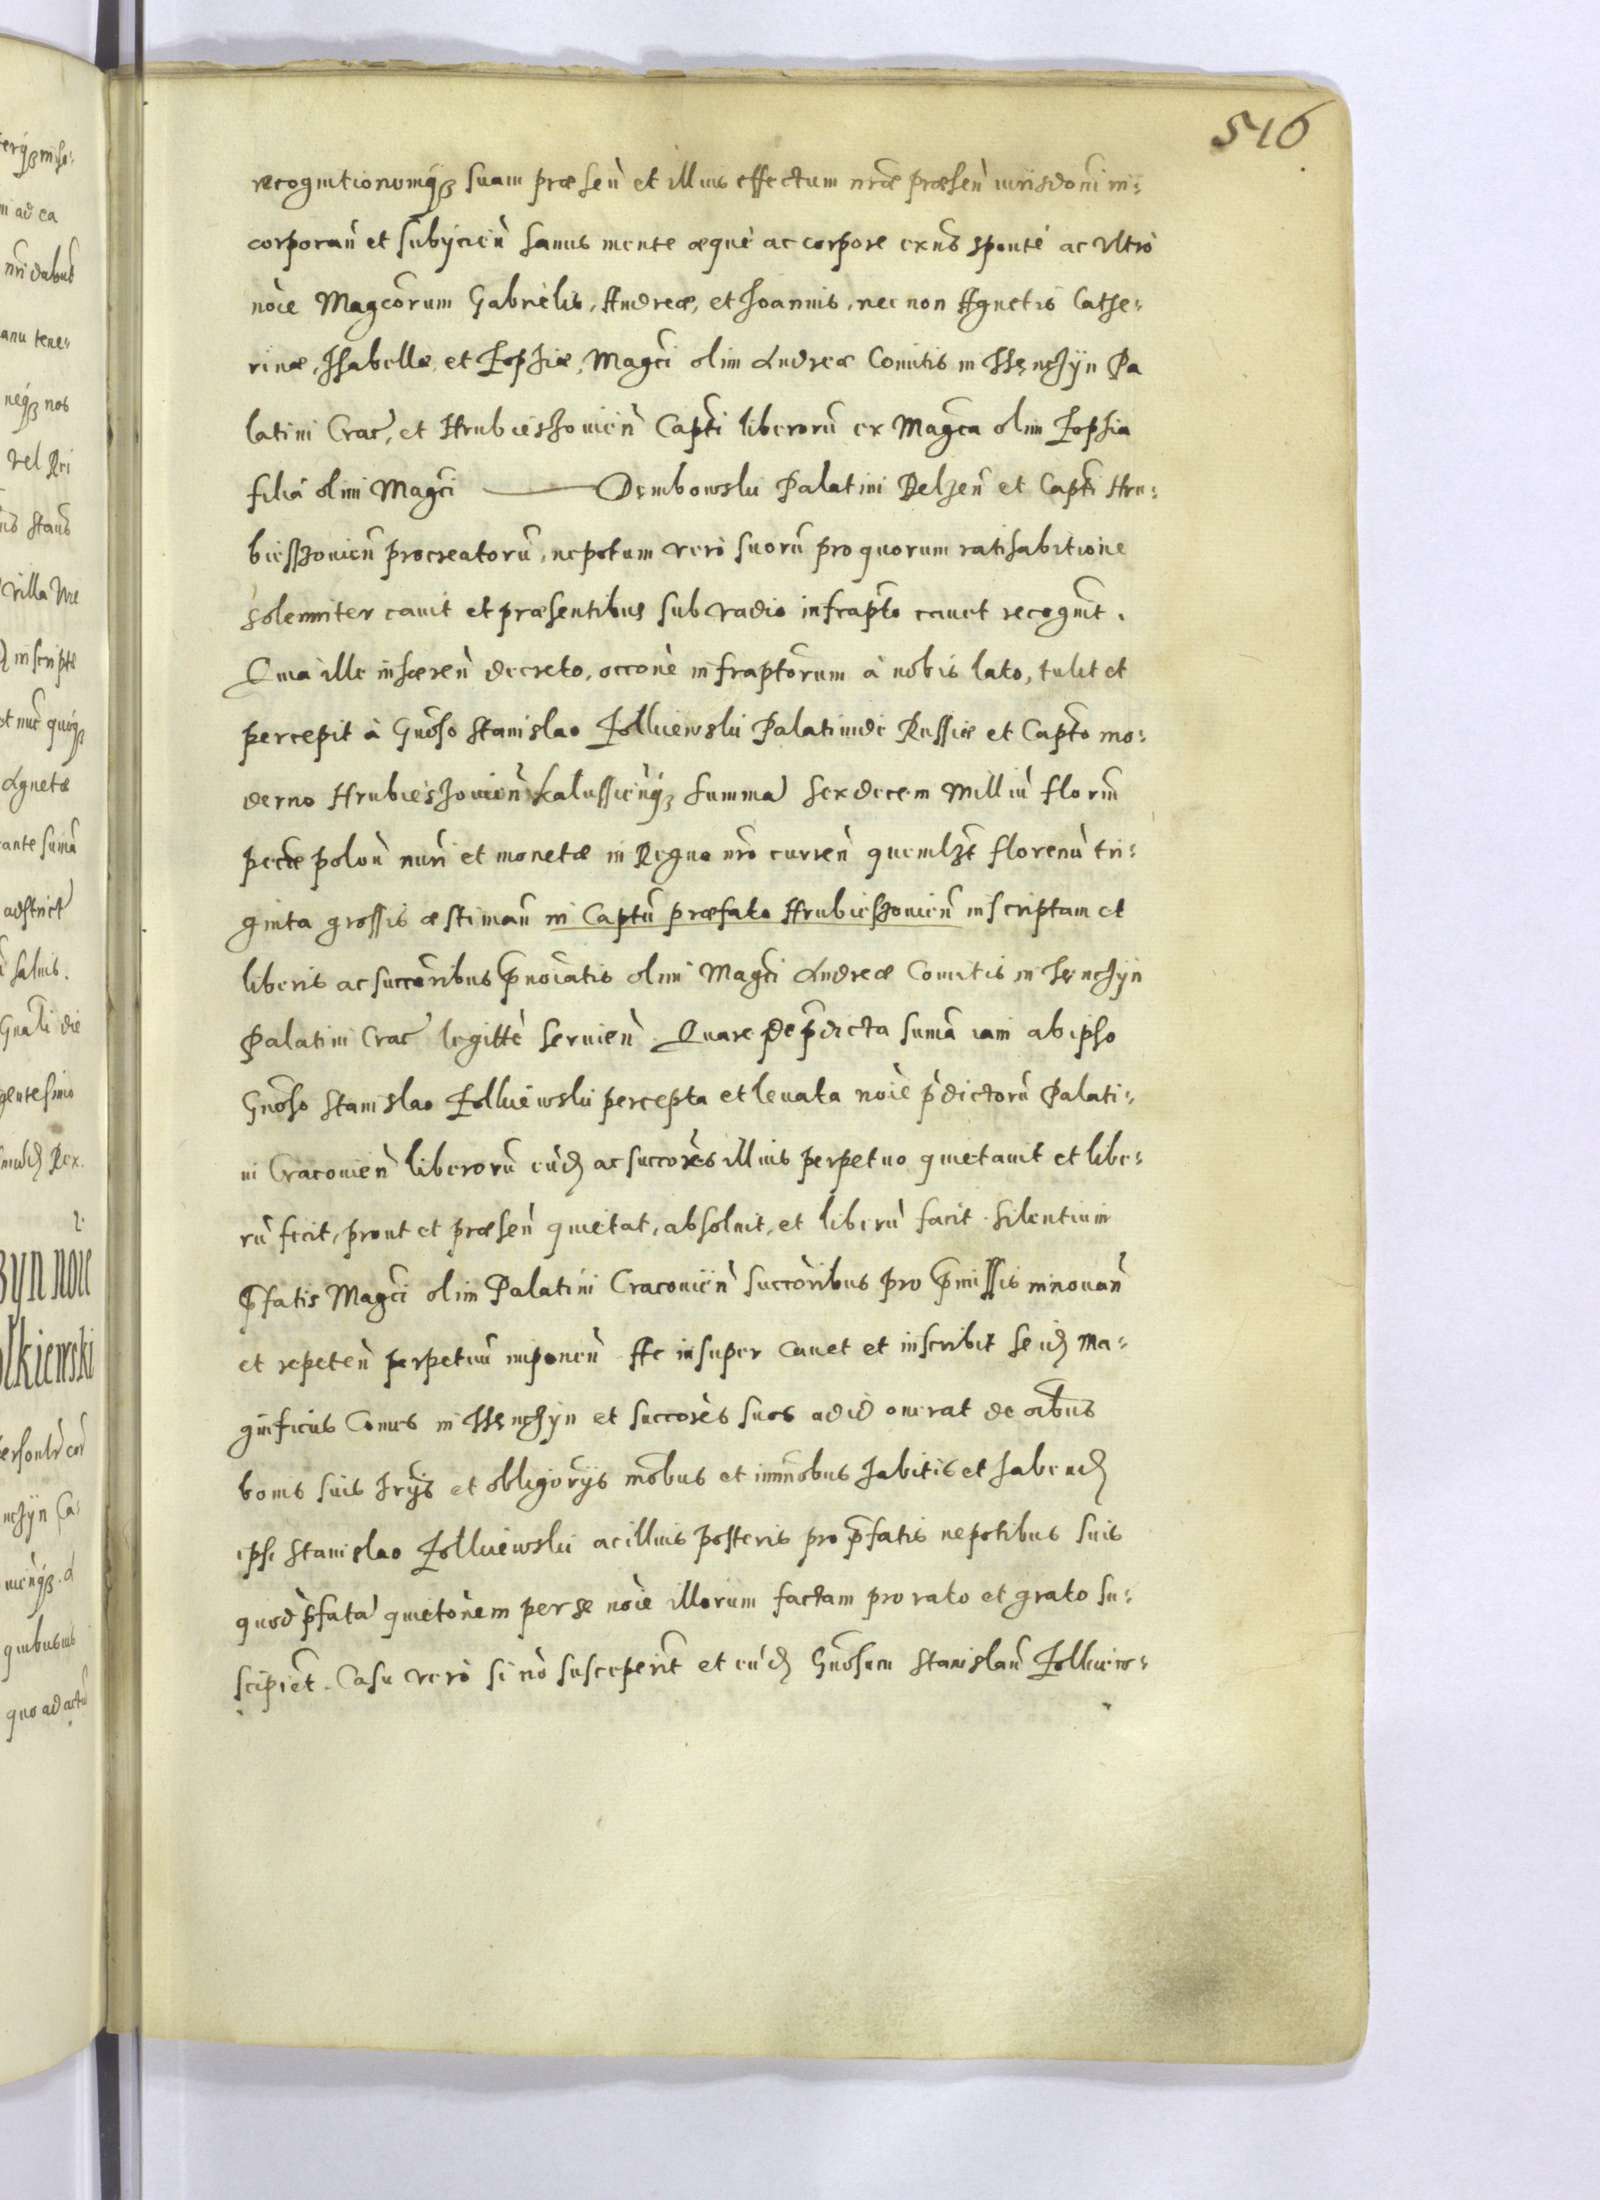 516
recognitionemq3 suam præsen̄ et illius effectum nræ præsen̄ iurisdoni in:
corporan̄ et subÿcien̄ sanus mente æquè ac corpore exñs sponté ac vltró
nōie Magcorum Gabriēlis, Andreæ, et Joannis, nec non Agnetis Cathe:
rinæ, Isabellæ, et Zophiæ, Magci olim Andreæ Comitis in Thęnchÿn Pa
latini Crac, et Hrubieshouien̄ Capti liberorū ex Magca olim Zophia
filiá olim Magci ——— Dembowskii Palatini Belzen̄ et Capti Hru:
biesshouien̄ procreatorū, nepotum veró suorū pro quorum ratihabitione
solenniter cauit et præsentibus sub vadio infrapto cauet recognit.
Quia ille inhæren̄ decreto, occōne infraptorum á nobis lato, tulit et
percepit á Gnoso Stanislao Zolkiewskii Palatinide Russiæ et Capto mo:
derno Hrubieshouien̄ Kalussien̄q3 summā sexdecem Milliū florin̄
pecæ polon̄ nūri et monetæ in Regno nro curren̄ quemlzt florenū tri:
ginta grossis æstiman̄ in Captū præfato Hrubieshouien̄ inscriptam et
liberis ac succoribus p̄noiatis olim Magci Andreæ Comitis in Thęnchÿn
Palatini Crac legittè seruien̄ Quare de p̄dicta sumā iam ab ipso
Gnoso Stanislao Zolkiewskii percepta et leuata nōie p̄dictorū Palati:
ni Cracouien̄ liberorū eūd ac succores illius perpetuo quietauit et libe:
rū fecit, prout et præsen̄ quietat, absoluit, et liberū facit. Silentium
p̄fatis Magci olim Palatini Cracouien̄ succoribus pro p̄missis innouan̄
et repeten̄ perpetuū imponen̄ Ac insuper cauet et inscribit se id Ma:
gnificus Comes in Thęnchÿn et succores suos ad id onerat de oibus
bonis suis hrÿs et obligorÿs mobus et immobus habitis et habend
ipsi Stanislao Zolkiewskii ac illius posteris pro p̄fatis nepotibus suis
quod p̄fatā quietōnem per se nōie illorum factam pro rato et grato su:
scipiet. Casu veró si nō susceperit et eūd Gnosum Stanislaū Zolkiew: